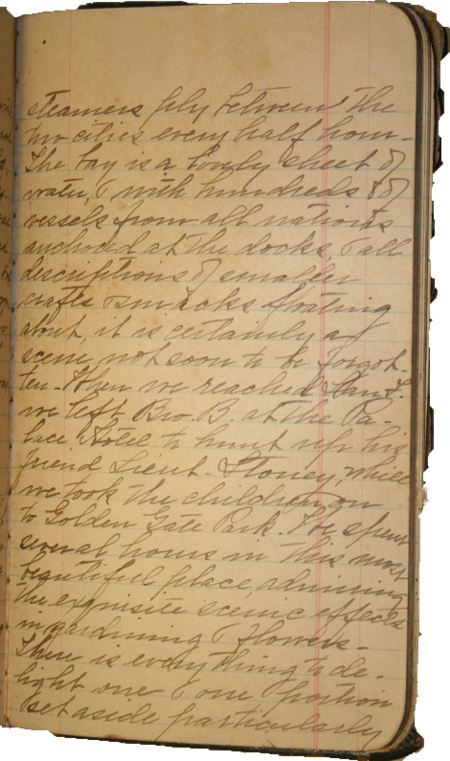 steamers ply between the
two cities every half hour -
The bay is a lovely sheet of
water, & with hundreds of
vessels from all nations
anchored at the docks, & all
descriptions of smaller
crafts & smacks floating
about, it is certainly a
scene, not soon to be forgot-
ten. When we reached San F.
we left Bro. B. at the Pa-
lace Hotel to hunt up his
friend Lieut. Stoney, while
we took the children on
to Golden Gate Park. We spent
several hours in this most
beautiful place, admiring
the exquisite scenic effects
in gardining & flowers -
There is everything to de-
light one & one portion
set aside particularly